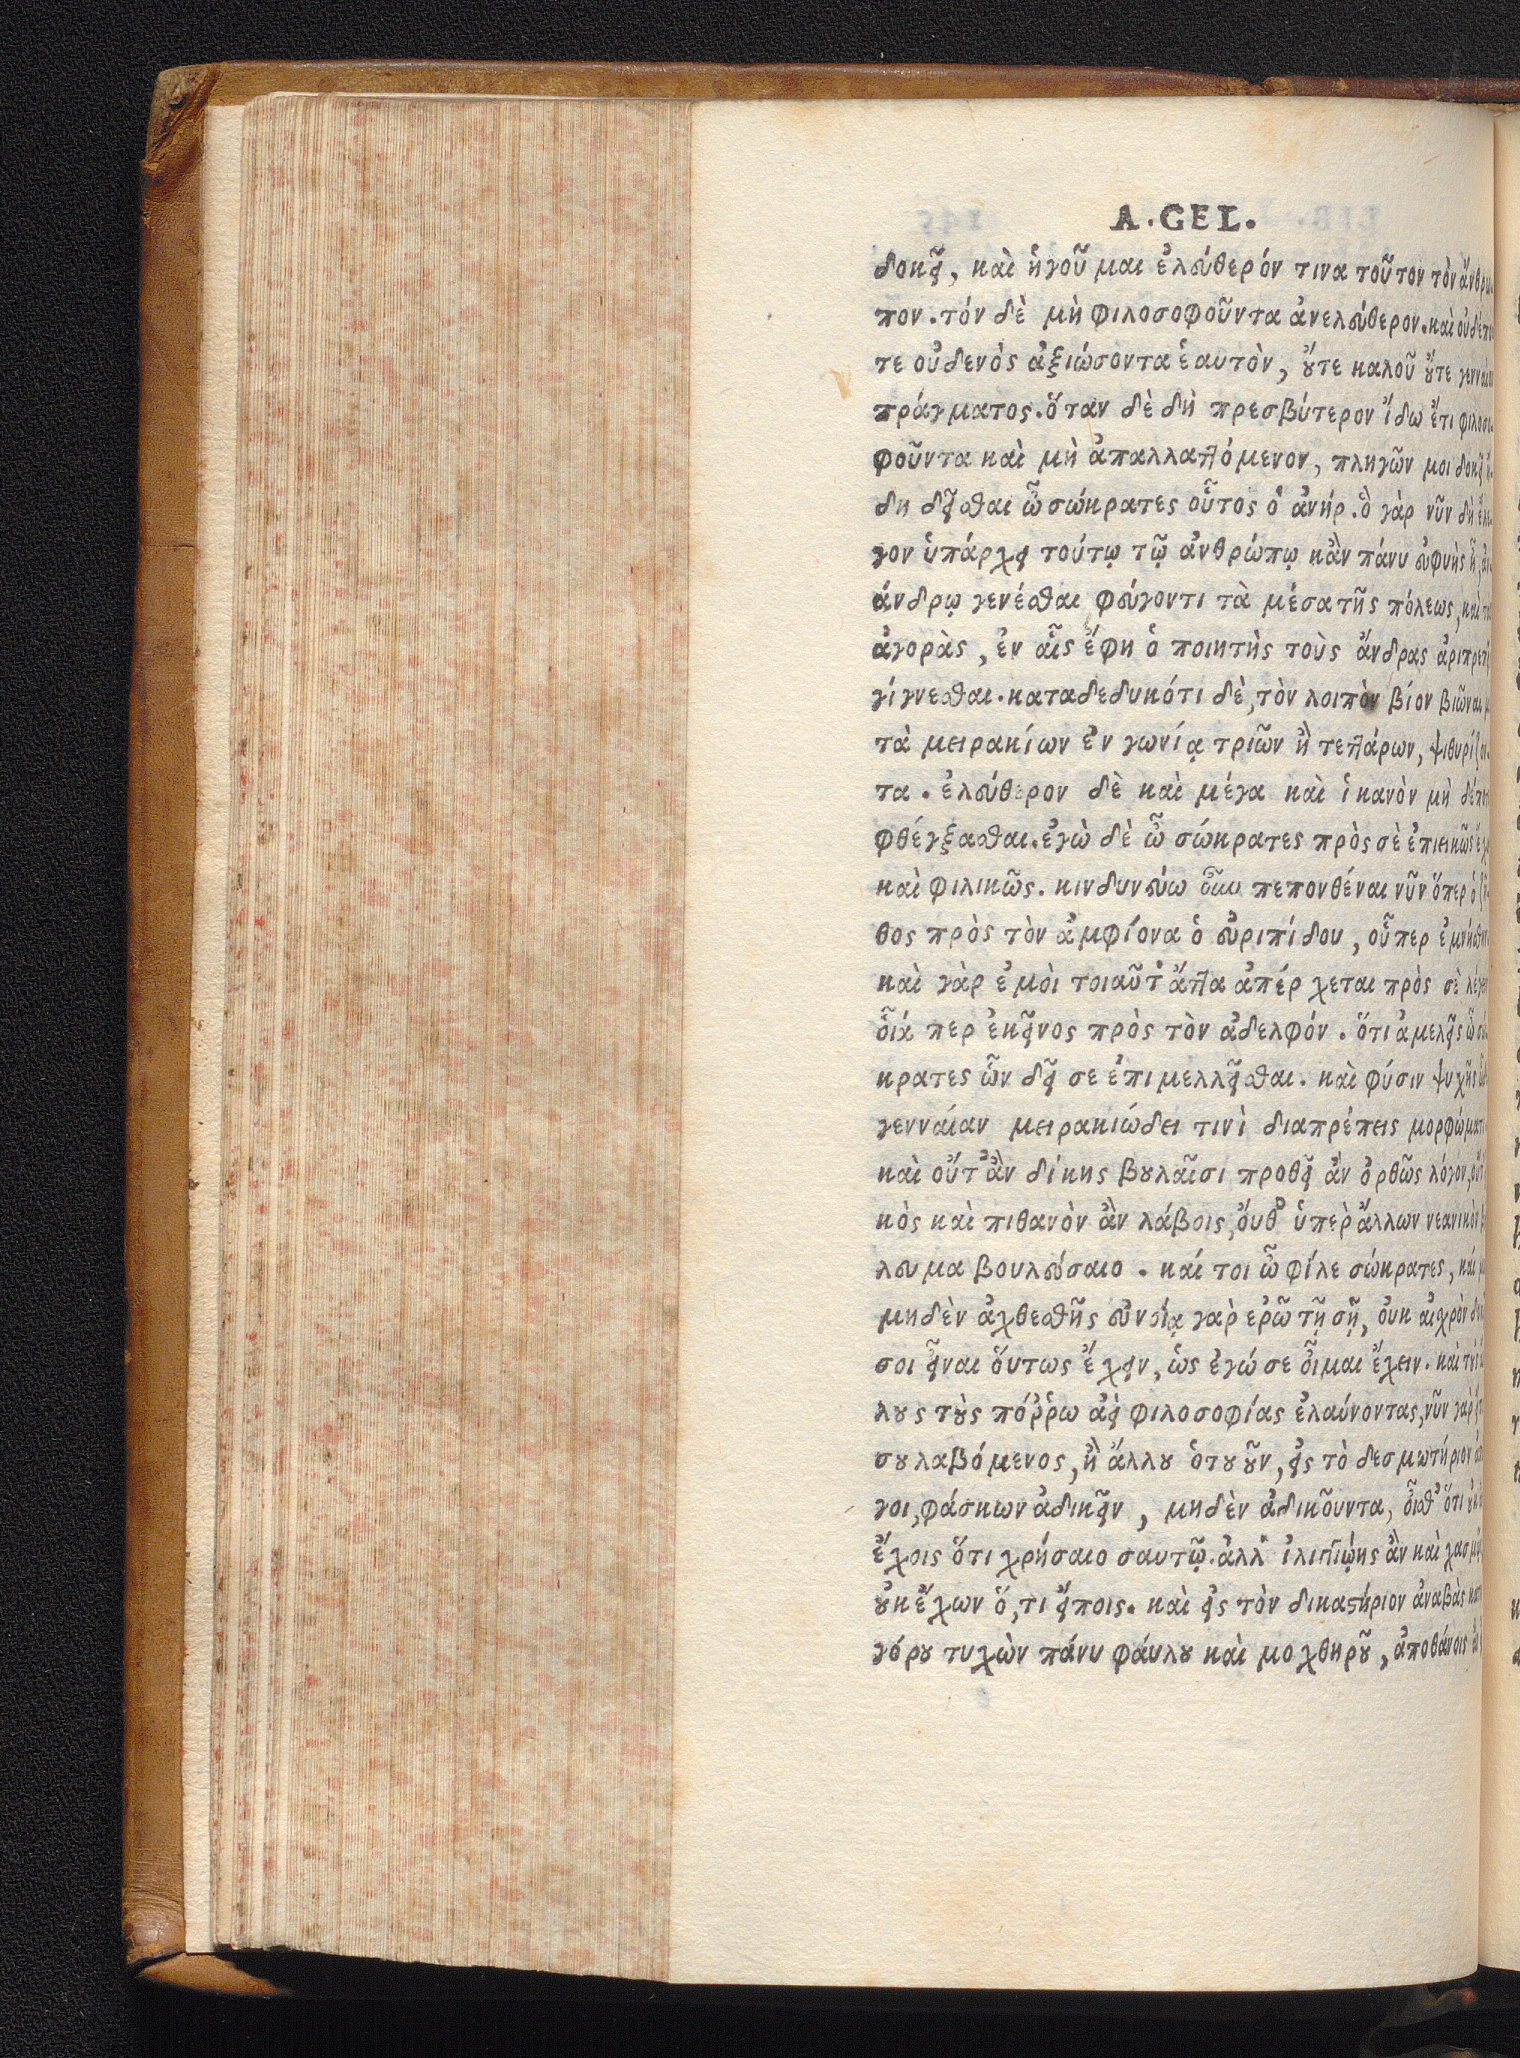 A. GEL.
δοκεῖ, καὶ ἡγοῦ μαι ἐλεύθερόν τινα τοῦτον τὸν
πον. τόν δὲ μὴ φιλοσοφοῦντα ἀνελεύθερον. καὶ
τε οὐδενὸς ἀξιώσοντα ἑαυτὸν, ȣ̓́τε καλοῦ ȣ̓́τε
πράγματος. ὅταν δὲ δὴ πρεσβύτερον ἴδω ἔτι
φοῦντα καὶ μὴ ἀπαλλαττόμενον, πληγῶν μοι δοκεῖ
δη δεῖσθαι ὦ σώκρατες οὗτος ὁ ἀνήρ. ὃ γὰρ νῦν δὴ
γον ὑπάρχει τούτῳ τῷ ἀνθρώπῳ κἂν πάνυ εὐφυὴς ᾖ,
άνδρῳ γενέσθαι φεύγοντι τὰ μέσα τῆς πόλεως,
ἀγορὰς, ἐν αἷς ἔφη ὁ ποιητὴς τοὺς ἄνδρας
γίγνεσθαι. καταδεδυκότι δὲ, τὸν λοιπὸν βίον βιῶναι
τὰ μειρακίων ἐν γωνίᾳ τριῶν ἢ τεττάρων,
τα. ἐλεύθερον δὲ καὶ μέγα καὶ ἱκανὸν μὴ
φθέγξασθαι. ἐγὼ δὲ ὦ σώκρατες πρὸς σὲ ἐπιεικῶς
καὶ φιλικῶς. κινδυνεύω οὖν πεπονθέναι νῦν ὅπερ ὁ
θος πρὸς τὸν ἀμφίονα ὁ εὐριπίδου, οὗπερ
καὶ γὰρ ἐμοὶ τοιαῦτ' ἄττα ἀπέρ χεται πρὸς σὲ
οἷά περ ἐκεῖνος πρὸς τὸν ἀδελφόν. ὅτι ἀμελεῖς ὦ
κρατες ὧν δεῖ σε ἐπι μελλεῖσθαι. καὶ φύσιν ψυχῆς
γενναίαν μειρακιώδει τινὶ διαπρέπεις
καὶ οὔτ' ἂν δίκης βȣλαῖσι προθεῖ ἀν ὀρθῶς λόγον,
κὸς καὶ πιθανὸν ἂν λάβοις, ὄυθ' ὑπὲρ ἄλλων νεανικὸν
λευμα βουλεύσαιο. καί τοι ὦ φίλε σώκρατες, καί
μηδὲν ἀχθεσθῇς εὐνοίᾳ γὰρ ερῶ τῇ σῇ, ὀυκ αἰχρὸν
σοι εἶναι ὅυτως ἔχειν, ὡς ἐγώ σε οἶμαι ἔχειν. καὶ
λȣς τȣ̀ς πόῤῥω ἀεὶ φιλοσοφίας ἐλαύνοντας, νῦν γὰρ
σȣ λαβόμενος, ἢ ἄλλȣ ὁτȣȣ͂ν, εἰς τὸ δεσμωτήριον
γοι, φάσκων ἀδικεῖν, μηδὲν ἀδικοῦντα, οἶσθ' ὅτι
ἔχοις ὅτι χρήσαιο σαυτῷ. ἀλλ' ἰλιγγιῴης ἂν καὶ
ȣ̓κ ἔχων ὅ, τι εἴποις. καὶ εἰς τὸν δικαστήριον ἀναβὰς
γόρȣ τυχὼν πάνυ φάυλȣ καὶ μο χθηρȣ͂, ἀποθάνοις